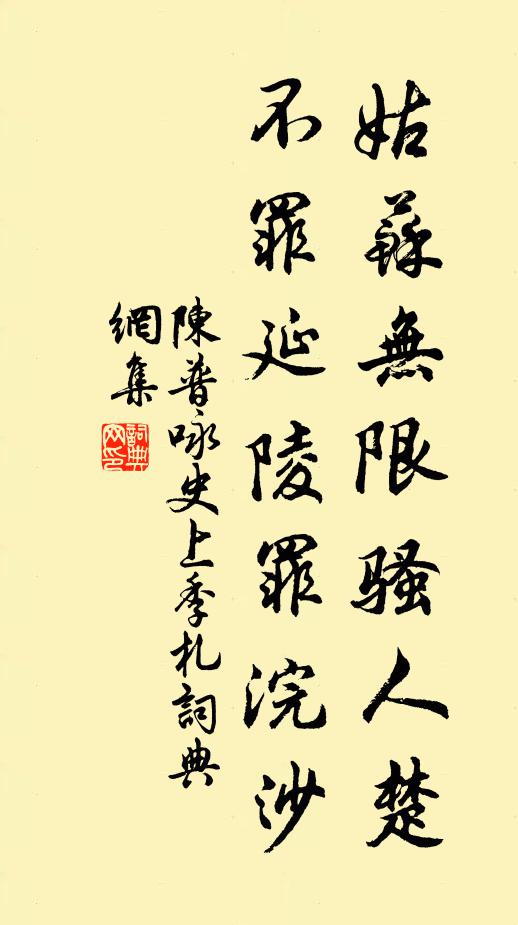 姑蘇無限騷人楚
不罪延陵罪浣沙
陳普咏史上季札詞典
網集
詞典
网印